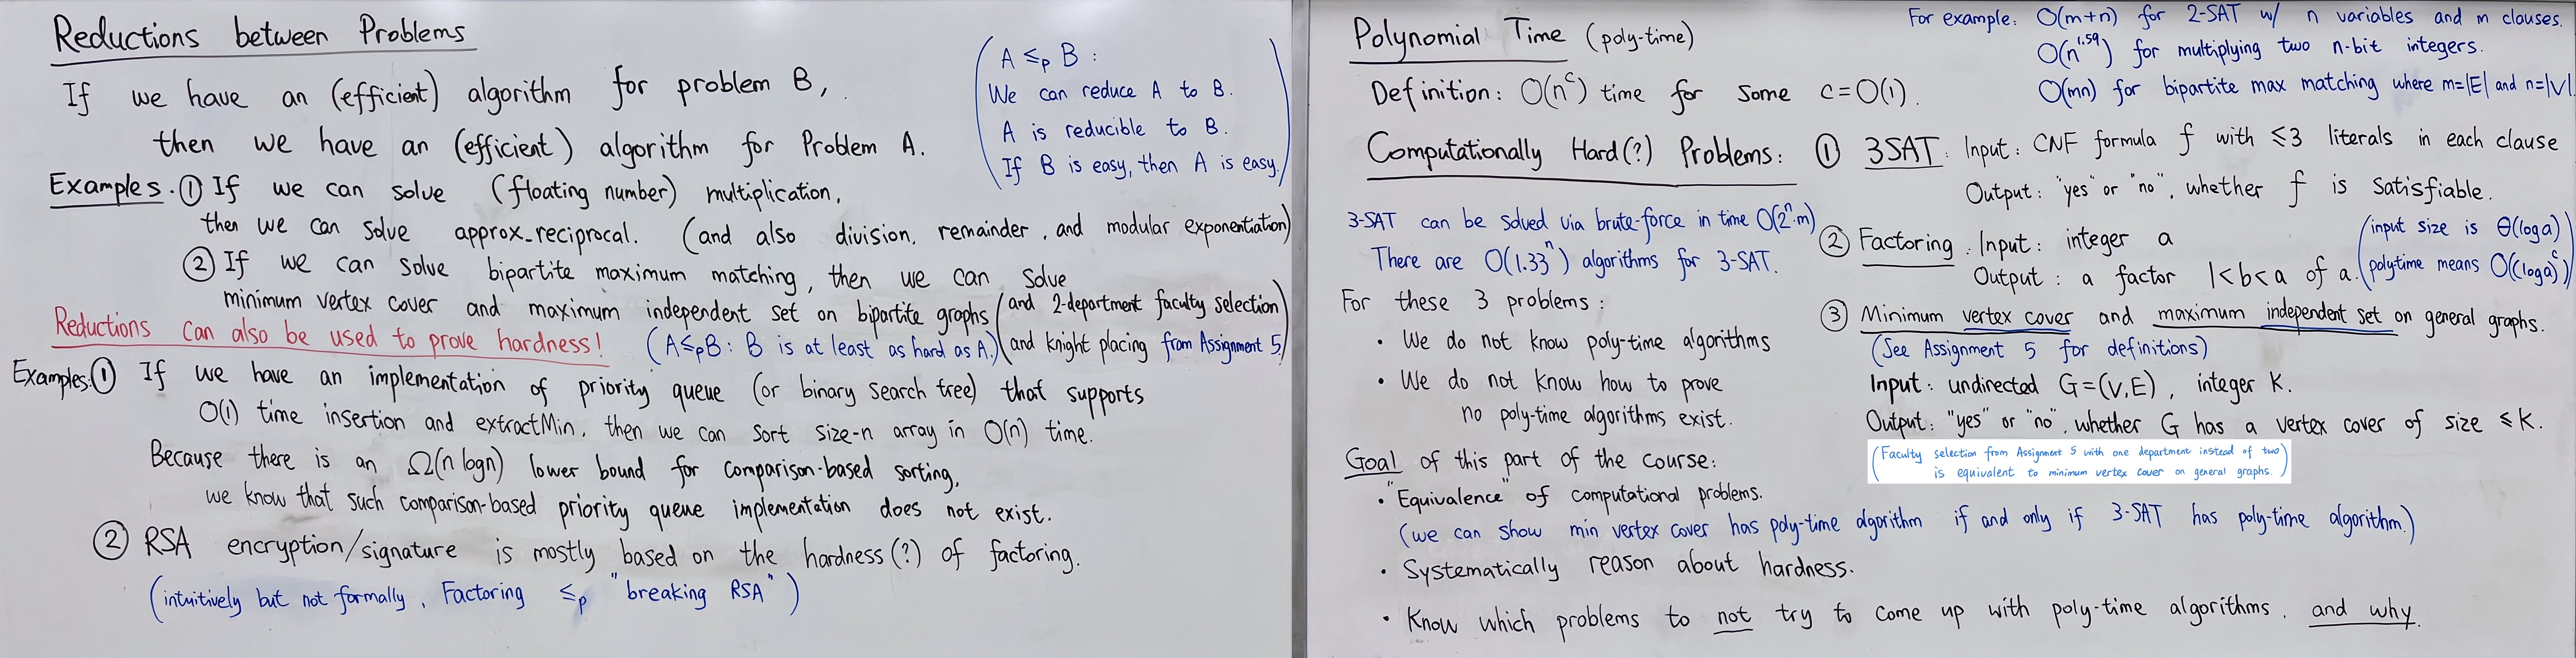 Reductions between Problems
If we have an (efficient) algorithm for problem B,
then we have an (efficient) algorithm for Problem A.
(A ≤p B :
We can reduce A to B.
A is reducible to B.
If B is easy, then A is easy.)
Examples. ① If we can solve (floating number) multiplication,
then we can solve approx_reciprocal. (and also division, remainder, and modular exponentiation)
② If we can solve bipartite maximum matching, then we can solve
minimum vertex cover and maximum independent set on bipartite graphs (and 2-department faculty selection
and knight placing from Assignment 5)
Reductions can also be used to prove hardness! (A≤pB: B is at least as hard as A.)
Examples: ① If we have an implementation of priority queue (or binary search tree) that supports
O(1) time insertion and extractMin, then we can sort size-n array in O(n) time.
Because there is an Ω(n logn) lower bound for comparison-based sorting,
we know that such comparison-based priority queue implementation does not exist.
② RSA encryption/signature is mostly based on the hardness(?) of factoring.
(intuitively but not formally, Factoring ≤p "breaking RSA")
Polynomial Time (poly-time)
For example: O(m+n) for 2-SAT w/ n variables and m clauses.
O(n^1.59) for multiplying two n-bit integers.
O(mn) for bipartite max matching where m=|E| and n=|V|
Definition: O(n^c) time for some c=O(1).
Computationally Hard(?) Problems: ① 3SAT: Input: CNF formula f with ≤3 literals in each clause
Output: "yes" or "no", whether f is Satisfiable.
3-SAT can be solved via brute-force in time O(2^n·m)
There are O(1.33^n) algorithms for 3-SAT.
② Factoring. Input: integer a
Output: a factor 1<b<a of a.
(input size is Θ(log a)
polytime means O((log a)^c))
For these 3 problems:
• We do not know poly-time algorithms
• We do not know how to prove
no poly-time algorithms exist.
③ Minimum vertex cover and maximum independent set on general graphs.
(See Assignment 5 for definitions)
Input: undirected G=(V,E), integer K.
Output: "yes" or "no", whether G has a vertex cover of size ≤K.
(Faculty selection from Assignment 5 with one department instead of two
is equivalent to minimum vertex cover on general graphs.)
Goal of this part of the course:
• "Equivalence" of computational problems.
(we can show min vertex cover has poly-time algorithm if and only if 3-SAT has poly-time algorithm.)
• Systematically reason about hardness.
• Know which problems to not try to come up with poly-time algorithms, and why.